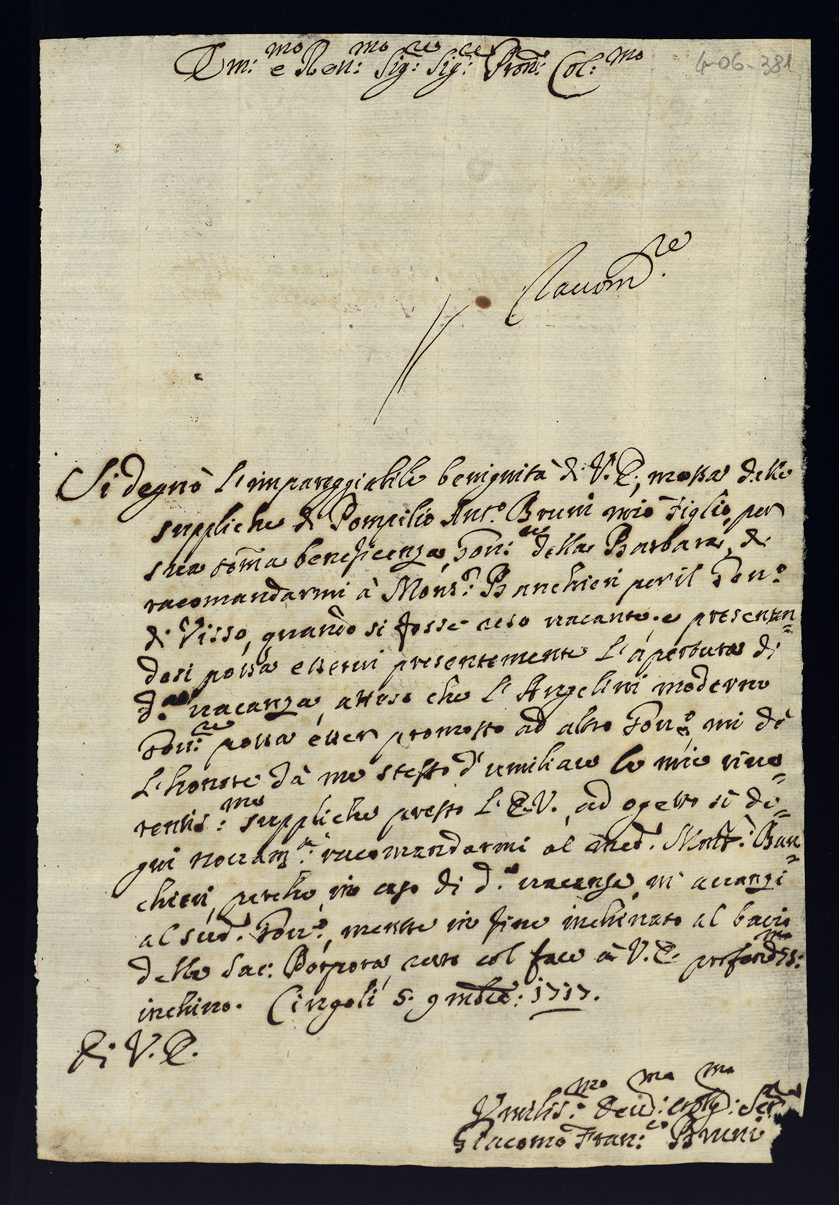 Em:mo e Reu:mo Sig:re Sig:re Pron: Col:mo
4-06-381
Si degnò l'impareggiabile benignità di V.E., mossa dalle
suppliche di Pompilio Ant.o Bruni mio figlio, per
sua somã beneficenza, Gou:re della Barbara, di
racomandarmi à Mons.r Banchieri per il Gou:o
di Visso, quando si fosse reso uacante, e presentan=
dosi possa esserui presentemente l'apertura di
d.a uacanza, atteso che l'Angelini moderno
Gou:re possa esser promosso ad altro Gou:o, mi dò
l'honore dà me stesso d'umiliare le mie riue=
rentis:me suppliche presso l'E.V., ad ogetto si de=
gni nouam:te racomandarmi al med. Mons:r Ban=
chieri, perche in caso di d.a uacanza, m'auanzi
al sud. Gou:o, mentre in fine inchinato al bacio
della Sac: Porpora, resto col fare à V.E. profondis:mo
inchino. Cingoli 5. 9mbre: 1717.
Di V.E.
Vmilis:mo Deu:mo oblig:mo Ser:
Giacomo Fran:co Bruni